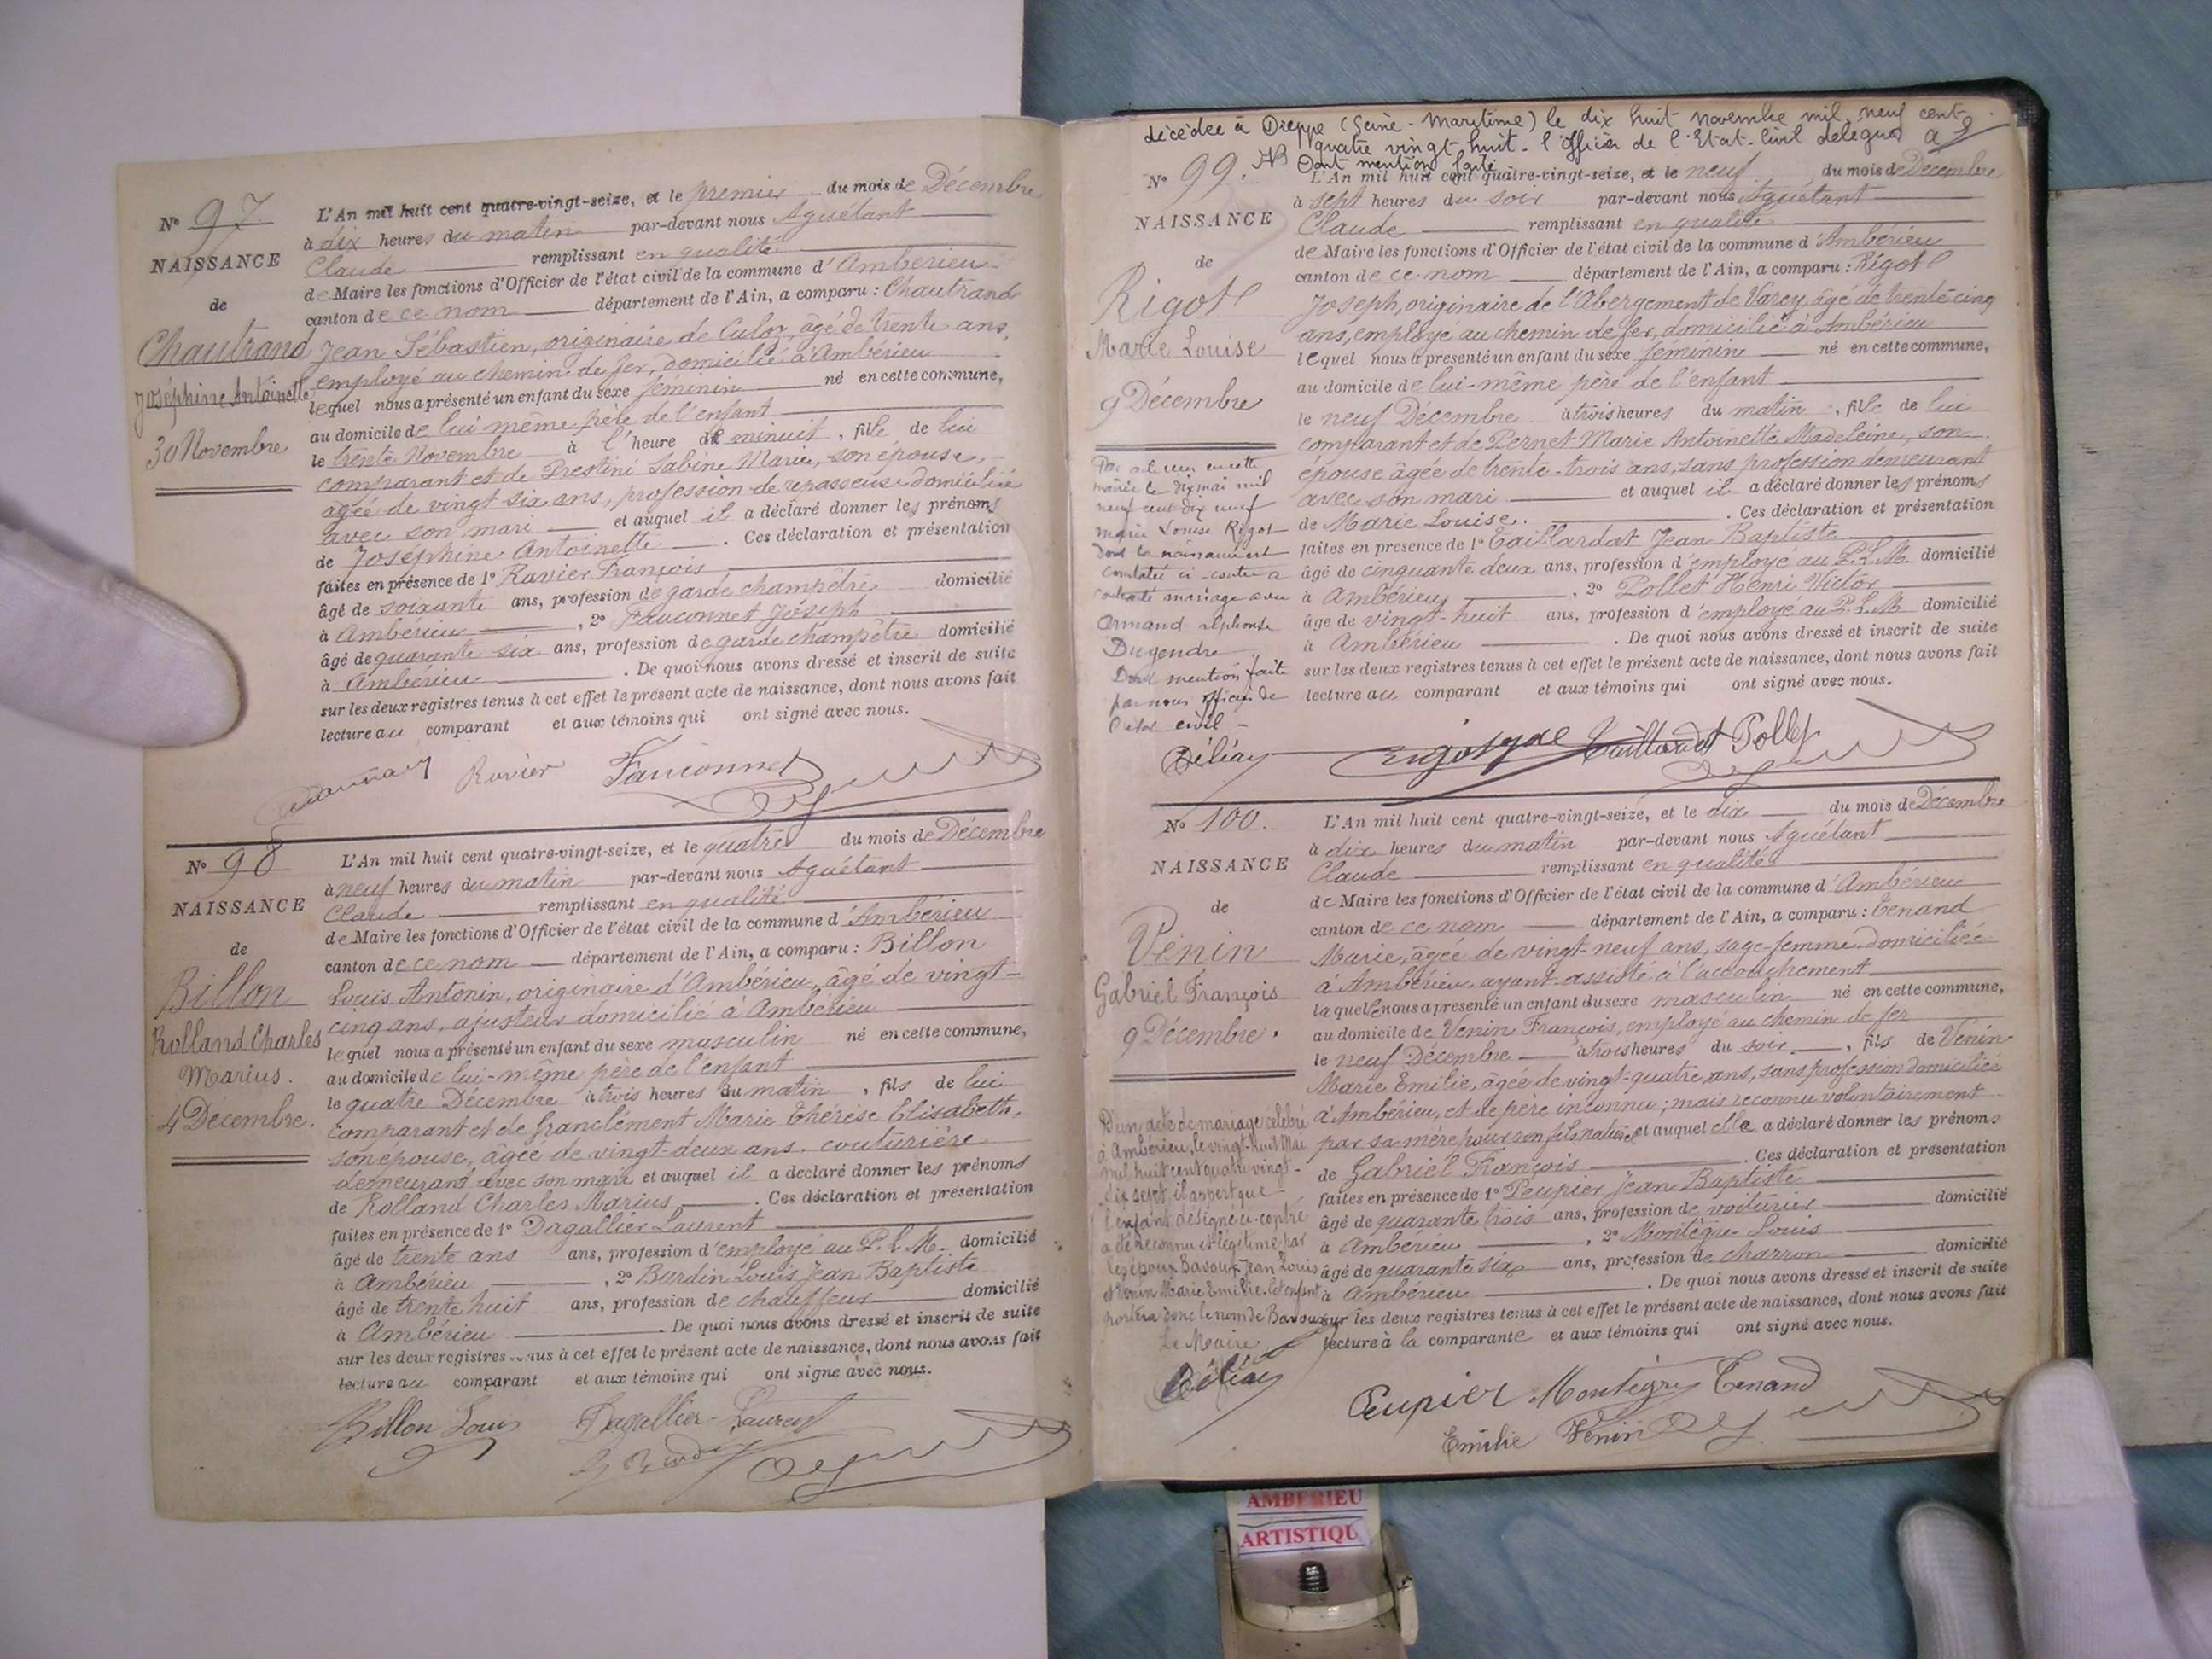 N° 97
NAISSANCE
de
Chautrand
Joséphine Antoinette
30 Novembre
L'An mil huit cent quatre-vingt-seize, et le premier du mois de Décembre
à dix heures du matin par-devant nous Aguétant
Claude remplissant en qualité
de Maire les fonctions d'Officier de l'état civil de la commune d'Ambérieu
canton de ce nom département de l'Ain, a comparu : Chautrand
Jean Sébastien, originaire de Culoz, âgé de trente ans,
employé au chemin de fer, domicilié à Ambérieu
lequel nous a présenté un enfant du sexe féminin né en cette commune,
au domicile de lui même père de l'enfant
le trente Novembre à l'heure de minuit, fille de lui
comparant et de Prestini Sabine Marie, son épouse,
âgée de vingt-six ans, profession de repasseuse domiciliée
avec son mari et auquel il a déclaré donner les prénoms
de Joséphine Antoinette. Ces déclaration et présentation
faites en présence de 1° Ravier François
âgé de soixante ans, profession de garde champêtre domicilié
à Ambérieu, 2° Fauconnet Joseph
âgé de quarante six ans, profession de garde champêtre domicilié
à Ambérieu. De quoi nous avons dressé et inscrit de suite
sur les deux registres tenus à cet effet le présent acte de naissance, dont nous avons fait
lecture au comparant et aux témoins qui ont signé avec nous.
Ravier Fauconnet
N° 98
NAISSANCE
de
Billon
Rolland Charles
Marius.
4 Décembre.
L'An mil huit cent quatre-vingt-seize, et le quatre du mois de Décembre
à neuf heures du matin par-devant nous Aguétant
Claude remplissant en qualité
de Maire les fonctions d'Officier de l'état civil de la commune d'Ambérieu
canton de ce nom département de l'Ain, a comparu : Billon
Louis Antonin, originaire d'Ambérieu, âgé de vingt-
cinq ans, ajusteur domicilié à Ambérieu
lequel nous a présenté un enfant du sexe masculin né en cette commune,
au domicile de lui-même père de l'enfant
le quatre Décembre à trois heures du matin, fils de lui
comparant et de Franclément Marie Thérèse Elisabeth,
son épouse, âgée de vingt-deux ans, couturière
demeurant avec son mari et auquel il a déclaré donner les prénoms
de Rolland Charles Marius. Ces déclaration et présentation
faites en présence de 1° Dagallier Laurent
âgé de trente ans ans, profession d'employé au P.L.M. domicilié
à Ambérieu, 2° Burdin Louis Jean Baptiste
âgé de trente huit ans, profession de chauffeur domicilié
à Ambérieu. De quoi nous avons dressé et inscrit de suite
sur les deux registres tenus à cet effet le présent acte de naissance, dont nous avons fait
lecture au comparant et aux témoins qui ont signé avec nous.
Billon Louis Dagallier Laurent
décédée à Dieppe (Seine-Maritime) le dix huit novembre mil neuf cent
quatre vingt-huit. l'officier de l'Etat-Civil délégué
Dont mention faite
N° 99.
NAISSANCE
de
Rigot
Marie Louise
9 Décembre
L'An mil huit cent quatre-vingt-seize, et le neuf du mois de Décembre
à sept heures du soir par-devant nous Aguétant
Claude remplissant en qualité
de Maire les fonctions d'Officier de l'état civil de la commune d'Ambérieu
canton de ce nom département de l'Ain, a comparu : Rigot
Joseph, originaire de l'Abergement de Varey, âgé de trente cinq
ans, employé au chemin de fer, domicilié à Ambérieu
lequel nous a présenté un enfant du sexe féminin né en cette commune,
au domicile de lui-même père de l'enfant
le neuf Décembre à trois heures du matin, fille de lui
comparant et de Pernet Marie Antoinette Madeleine, son
épouse âgée de trente-trois ans, sans profession demeurant
avec son mari et auquel il a déclaré donner les prénoms
de Marie Louise. Ces déclaration et présentation
faites en présence de 1° Taillardat Jean Baptiste
âgé de cinquante deux ans, profession d'employé au P.L.M. domicilié
à Ambérieu, 2° Pollet Henri Victor
âgé de vingt-huit ans, profession d'employé au P.L.M domicilié
à Ambérieu. De quoi nous avons dressé et inscrit de suite
sur les deux registres tenus à cet effet le présent acte de naissance, dont nous avons fait
lecture au comparant et aux témoins qui ont signé avec nous.
Par acte en cette
mairie le dix mai mil
neuf cent dix neuf
Marie Louise Rigot
dont la naissance est
constatée ci-contre a
contracté mariage avec
Armand Alphonse
Dugendre
Dont mention faite
par nous officier de
l'état civil
Taillardat Pollet
N° 100.
NAISSANCE
de
Venin
Gabriel François
9 Décembre.
L'An mil huit cent quatre-vingt-seize, et le dix du mois de Décembre
à dix heures du matin par-devant nous Aguétant
Claude remplissant en qualité
de Maire les fonctions d'Officier de l'état civil de la commune d'Ambérieu
canton de ce nom département de l'Ain, a comparu : Tenand
Marie, âgée de vingt-neuf ans, sage-femme domiciliée
à Ambérieu, ayant assisté à l'accouchement
laquelle nous a présenté un enfant du sexe masculin né en cette commune,
au domicile de Venin François, employé au chemin de fer
le neuf Décembre à trois heures du soir, fils de Venin
Marie Emilie, âgée de vingt-quatre ans, sans profession domiciliée
à Ambérieu, et de père inconnu ; mais reconnu volontairement
par sa mère pour son fils naturel et auquel elle a déclaré donner les prénoms
de Gabriel François. Ces déclaration et présentation
faites en présence de 1° Peupier Jean Baptiste
âgé de quarante trois ans, profession de voiturier domicilié
à Ambérieu, 2° Montègre Louis
âgé de quarante six ans, profession de charron domicilié
à Ambérieu. De quoi nous avons dressé et inscrit de suite
sur les deux registres tenus à cet effet le présent acte de naissance, dont nous avons fait
lecture à la comparante et aux témoins qui ont signé avec nous.
D'un acte de mariage célébré
à Ambérieu, le vingt-huit Mai
mil huit cent quatre vingt-
dix sept, il appert que
l'enfant désigné ci-contre
a été reconnu et légitimé par
les époux Bavoux Jean Louis
et Venin Marie Emilie. Cet enfant
portera donc le nom de Bavoux
Le Maire
Peupier Montègre Tenand
Emilie Venin
AMBERIEU
ARTISTIQU